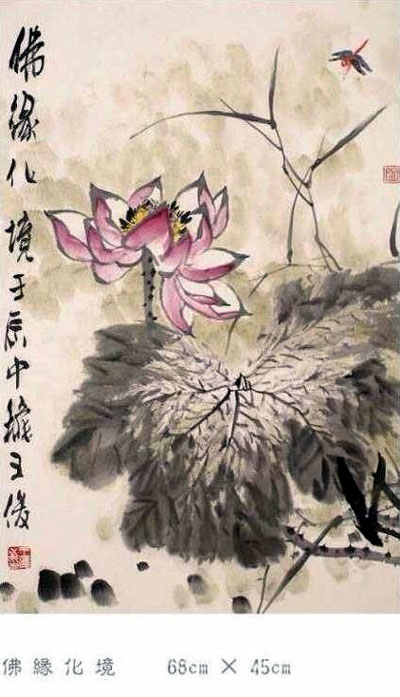 佛緣化境壬辰中龝王俊
佛緣化境 68cm × 45cm